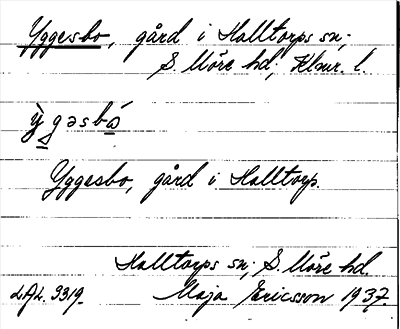 Yggesbo, gård i Halltorps sn;
S. Möre hd; Klmr. l.
ỳgəsbó
Yggesbo, gård i Halltorp.
Halltorps sn; S. Möre hd.
L.A.L. 3319. Maja Ericsson 1937.